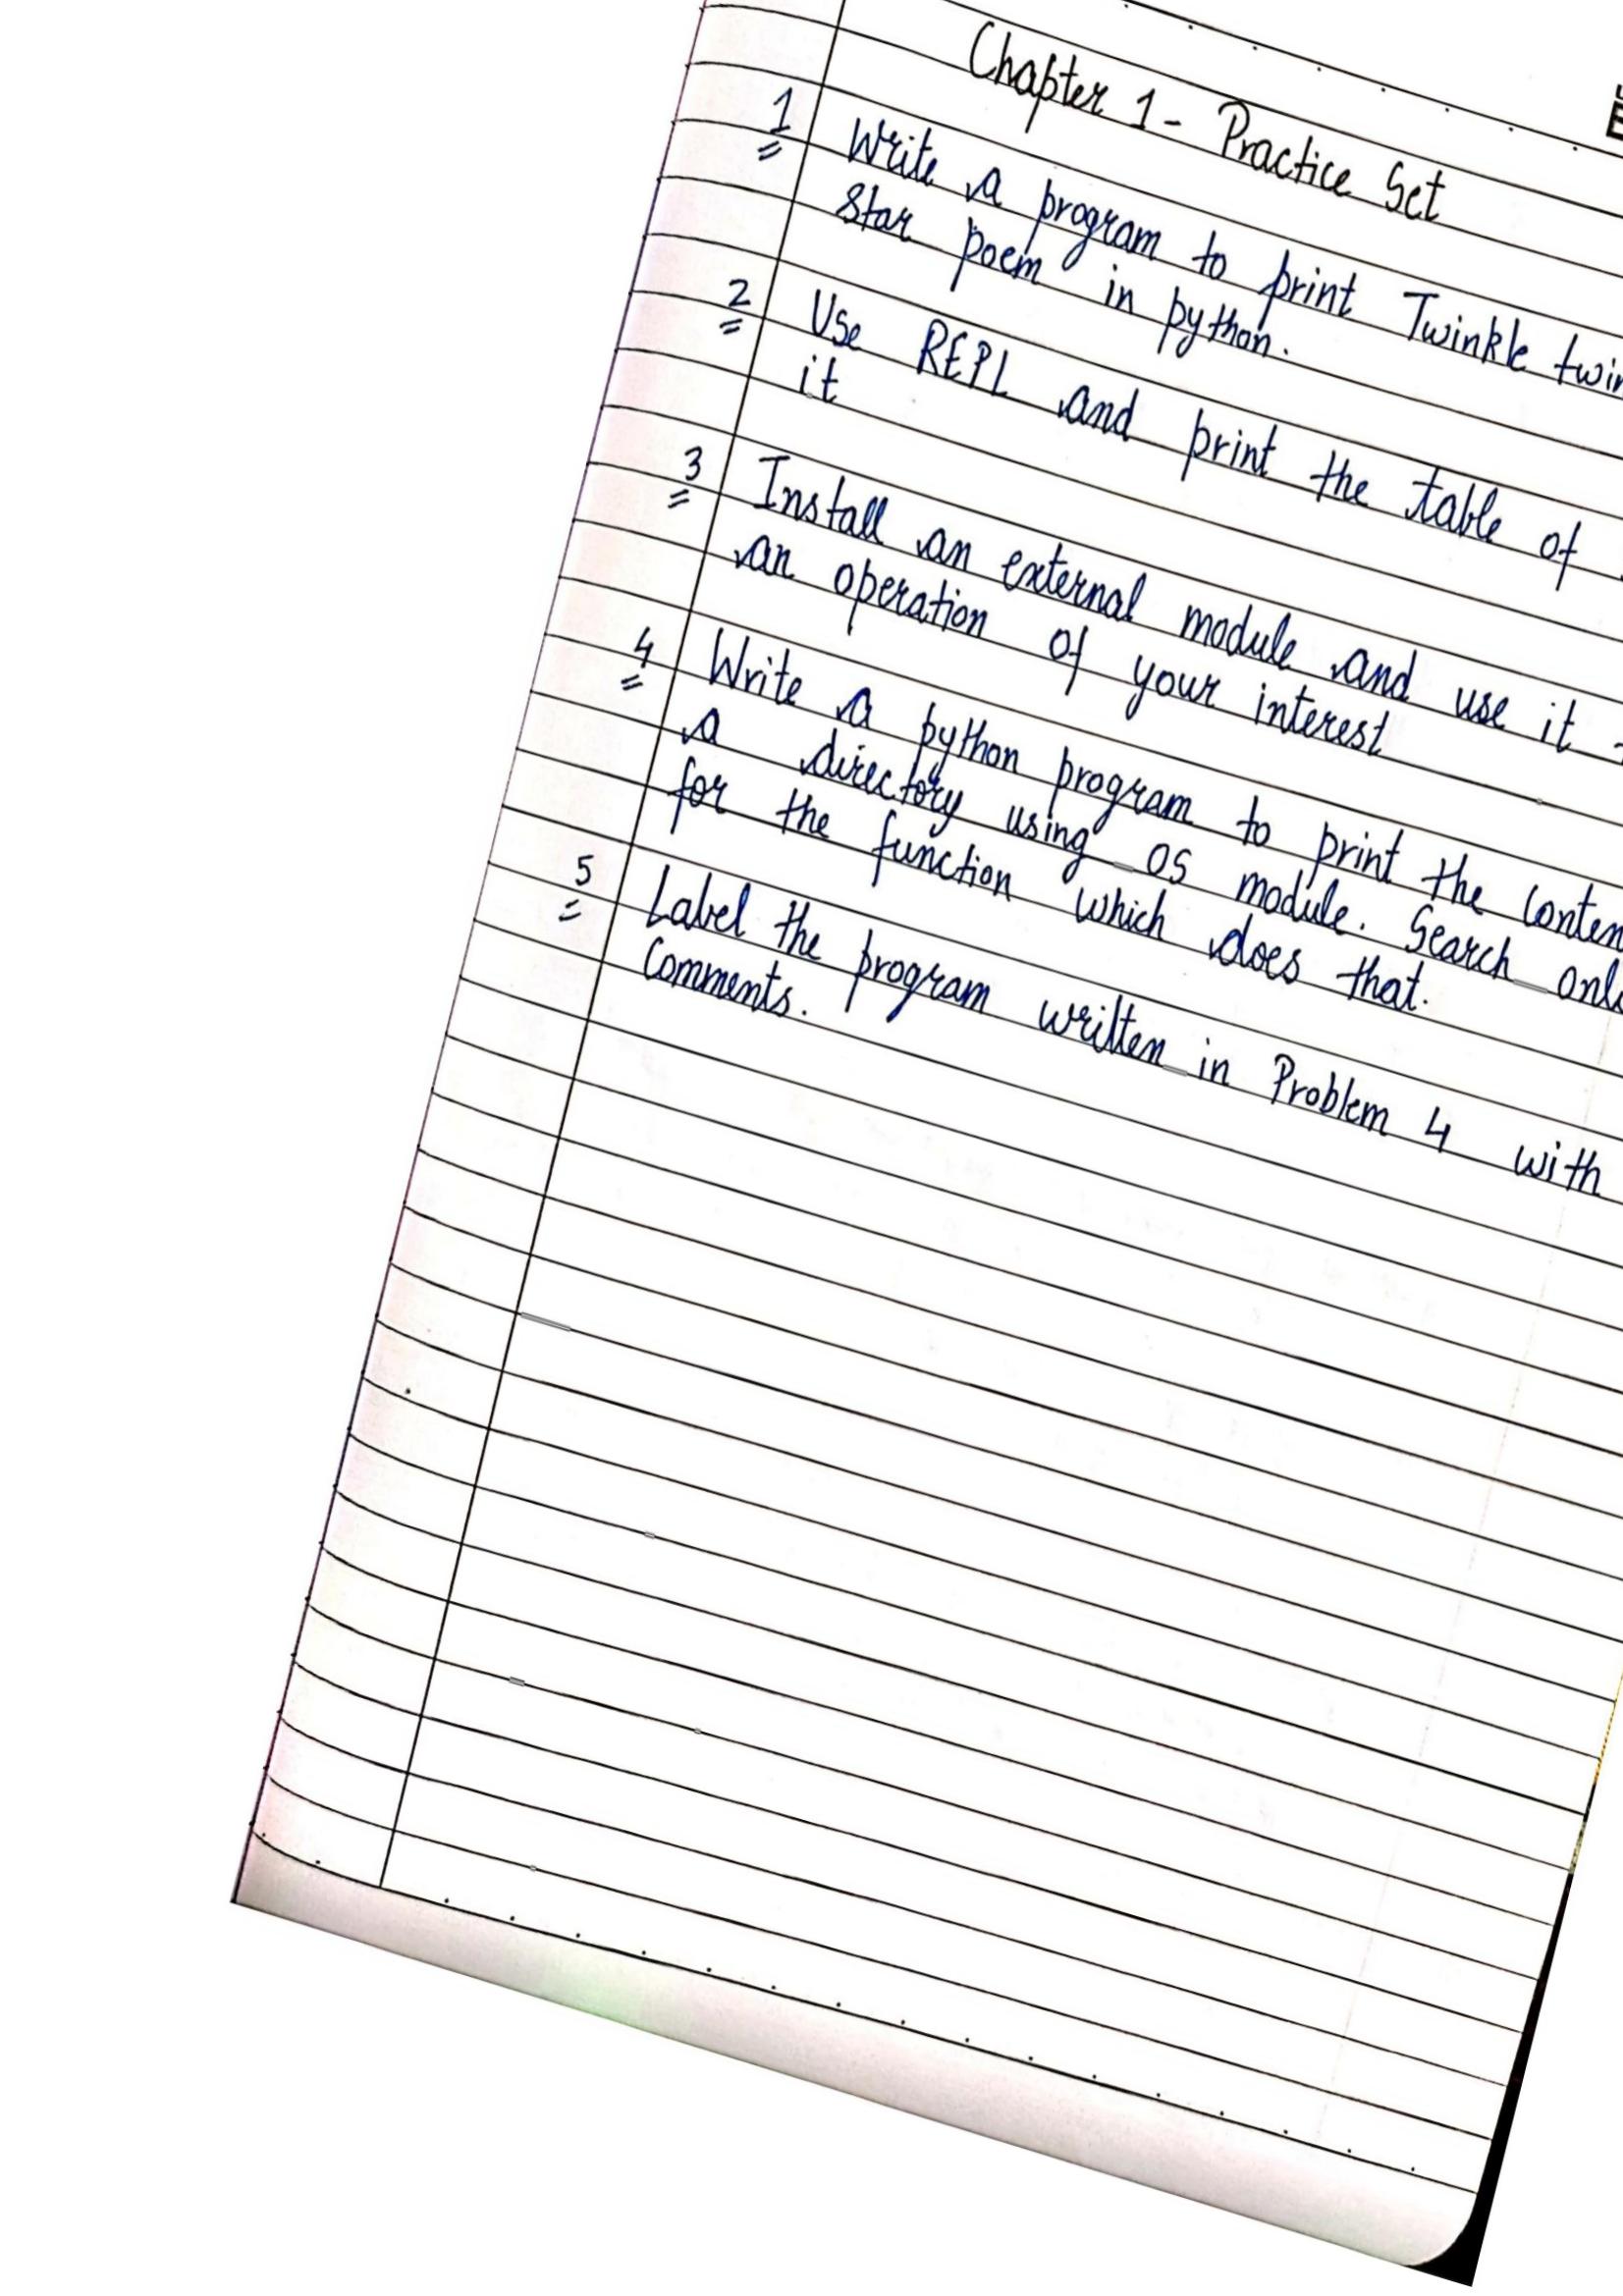 Chapter 1 - Practice Set
1 Write a program to print Twinkle
Star poem in python.
2 Use REPL and print the table of
it
3 Install an external module and use it
an operation of your interest
4 Write a python program to print the
a directory using os module. Search
for the function which does that.
5 Label the program written in Problem 4 with
Comments.